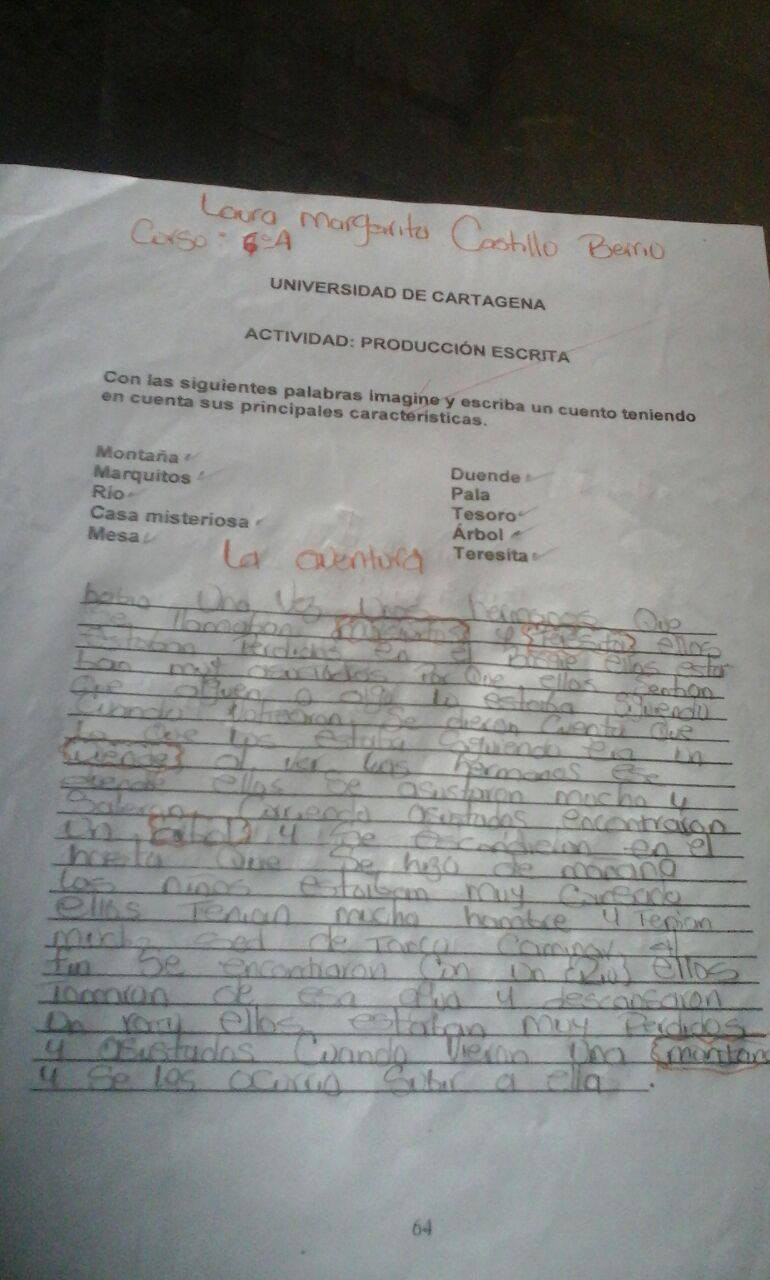 Laura Margarita Castillo Berrio
Curso: 6°A
UNIVERSIDAD DE CARTAGENA
ACTIVIDAD: PRODUCCIÓN ESCRITA
Con las siguientes palabras imagine y escriba un cuento teniendo
en cuenta sus principales características.
Montaña
Marquitos
Río
Casa misteriosa
Mesa
Duende
Pala
Tesoro
Árbol
Teresita
La aventura
habia una vez unos hermanos que
se llamaban y teresita ellos
estaban perdidos en el bosque ellos esta
ban muy asustados por que ellos sentian
que alguen o algo lo estaba siguendo
cuando voltearon se dieron cuenta que
lo que los estaba siguendo era un
duende al ver los hermanos ese
duende ellos se asustaron mucho y
salieron corriendo asustados encontraron
un y se escondieron en el
hasta que se hizo de mañana
los niños estaban muy
ellos tenian mucha hambre y tenian
mucha sed de tanto caminar al
fin se encontraron con un Rio ellos
tomaron de esa agua y descansaron
un ellos estaban muy perdidos
y asustados cuando vieron una montaña
y se les ocurrio subir a ella.
64